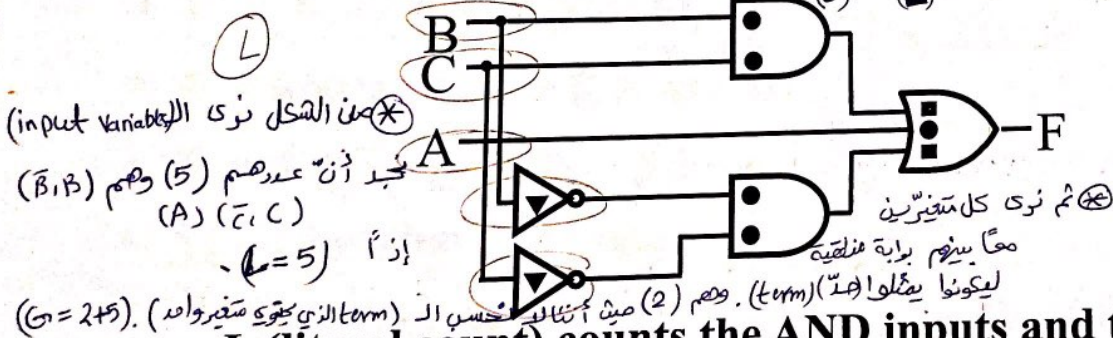 L
B
C
A
F
* من الشكل نرى الـ (input variables)
نجد أنّ عددهم (5) وهم (B̄, B)
(A) (C̄, C)
إذاً (L=5).
* ثم نرى كل متغيّرين
معاً بينهم بوابة منطقية
ليكونوا يمثلوا (حدّ) (term). وهم (2) حيث أننا لا نحسب الـ (term الذي يحتوي متغير واحد). (G=2+5)
counts the AND inputs and